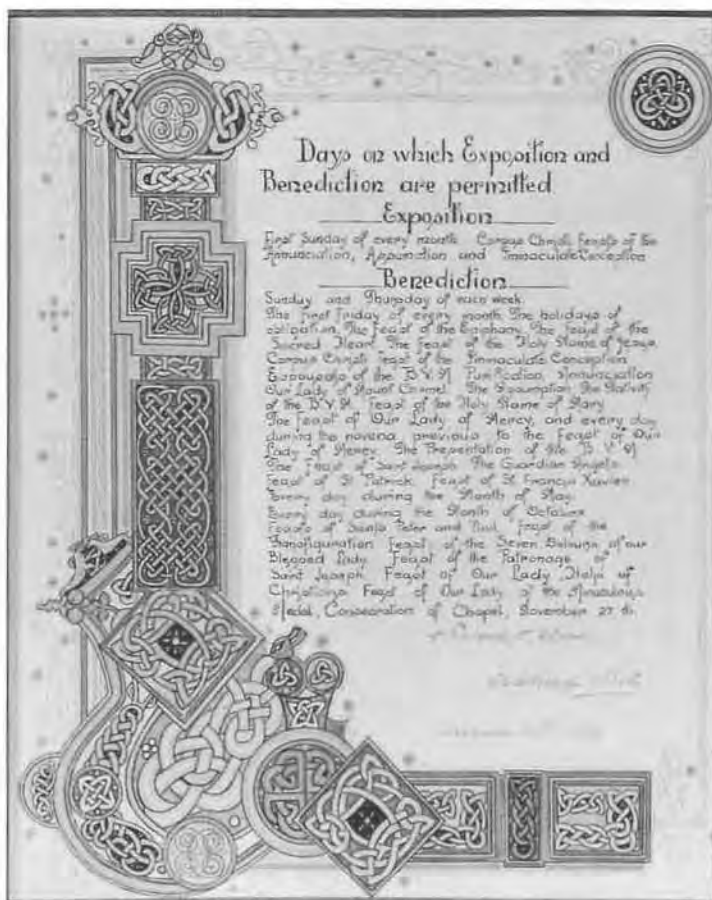 Days on which Exposition and
Benediction are permitted
Exposition
First Sunday of every month Corpus Christi Feasts of the
Annunciation, Assumption and Immaculate Conception
Benediction
Sunday and Thursday of each week.
The First Friday of every month The holidays of
obligation, The Feast of the Epiphany, The Feast of the
Sacred Heart The Feast of the Holy Name of Jesus,
Corpus Christi Feast of the Immaculate Conception
Espousals of the B.V.M Purification, Annunciation
Our Lady of Mount Carmel. The Assumption The Nativity
of the B.V.M. Feast of the Holy Name of Mary
The Feast of Our Lady of Mercy, and every day
during the novena previous to the Feast of Our
Lady of Mercy. The Presentation of the B.V.M
The Feast of Saint Joseph The Guardian Angels
Feast of St Patrick. Feast of St Francis Xavier
Every day during the Month of May.
Every day during the Month of October
Feasts of Saints Peter and Paul, Feast of the
Transfiguration Feast of the Seven Dolours of our
Blessed Lady. Feast of the Patronage of
Saint Joseph. Feast of Our Lady Help of
Christians Feast of Our Lady of the Miraculous
Medal, Consecration of Chapel, November 27 th.